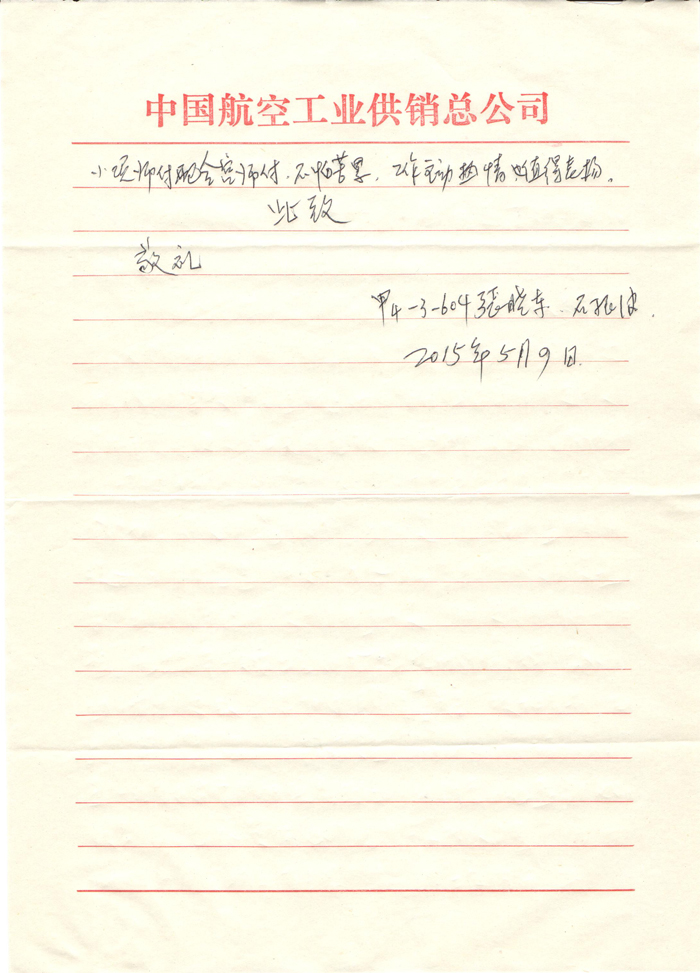 中国航空工业供销总公司
小项师付配合宫师付.不怕苦累.工作主动热情 值得表扬。
此致
敬礼
甲4-3-604 张晓东.石
2015年5月9日.